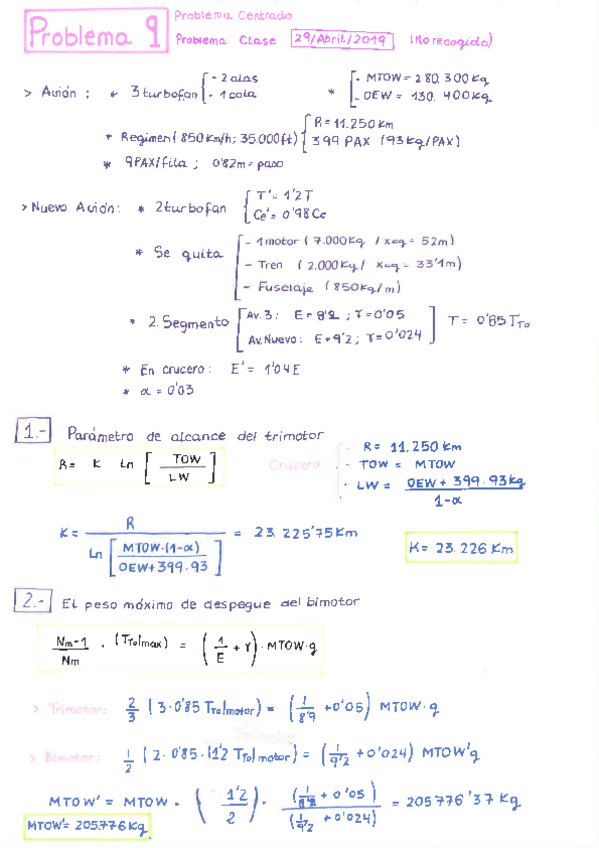 Problema 9
Problema Centrado
Problema Clase 29/Abril/2019 (No recogido)
> Avión: * 3 turbofan - 2 alas
- 1 cola
* - MTOW = 280.300 Kg
- OEW = 130.400 Kg
* Regimen (850 Km/h; 35.000 ft) R = 11.250 km
399 PAX (93 Kg/PAX)
* 9 PAX/fila ; 0'82m = paso
> Nuevo Avión: * 2 turbofan T' = 1'2 T
Ce' = 0'98 Ce
* Se quita - 1 motor (7.000 Kg / Xcg = 52m)
- Tren (2.000 Kg / Xcg = 33'1m)
- Fuselaje (850 Kg/m)
* 2. Segmento Av. 3: E = 8'9 ; γ = 0'05
Av. Nuevo: E = 9'2 ; γ = 0'024
T = 0'85 TTo
* En crucero: E' = 1'04 E
* α = 0'03
1.- Parámetro de alcance del trimotor
R = K Ln [ TOW / LW ]
Crucero - R = 11.250 km
- TOW = MTOW
- LW = OEW + 399.93 Kg / 1-α
K = R / Ln [ MTOW.(1-α) / OEW+399.93 ] = 23.225'75 Km
K = 23.226 Km
2.- El peso máximo de despegue del bimotor
Nm-1 / Nm . (TTo|max) = ( 1/E + γ ) . MTOW.g
> Trimotor: 2/3 ( 3.0'85 TTo|motor ) = ( 1/8'9 + 0'05 ) MTOW.g
> Bimotor: 1/2 ( 2.0'85.(1'2 TTo|motor ) = ( 1/9'2 + 0'024 ) MTOW'g
MTOW' = MTOW . ( 1'2 / 2 ) . ( 1/8'9 + 0'05 ) / ( 1/9'2 + 0'024 ) = 205776'37 Kg
MTOW' = 205.776 Kg